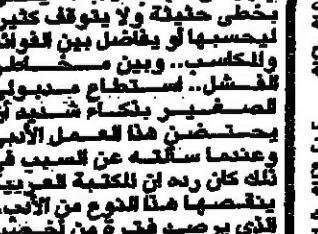 بخطى حثيثة ولا يتوقف كثير
ليحسبها أو يفاضل بين الفوائد
والمكاسب.. وبين مخاطر
الفشل.. استطاع مدبولى
الصغير بذكاء شديد أن
يحتضن هذا العمل الأدبى
وعندما سألته عن السبب فى
ذلك كان رده إن المكتبة العربية
ينقصها هذا النوع من الأدب
الذى يرصد فترة من أخصب